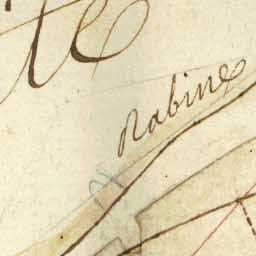 te
Rabine